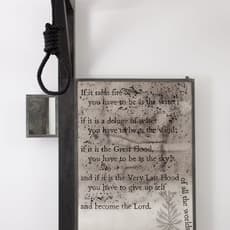 If it
you have to be the water;
if it is a deluge of water
you have to be the wind;
if it is the Great Flood,
you have to be the sky;
and if it is the Very Last Flood
you have to give up self
and become the Lord.
of all the worlds